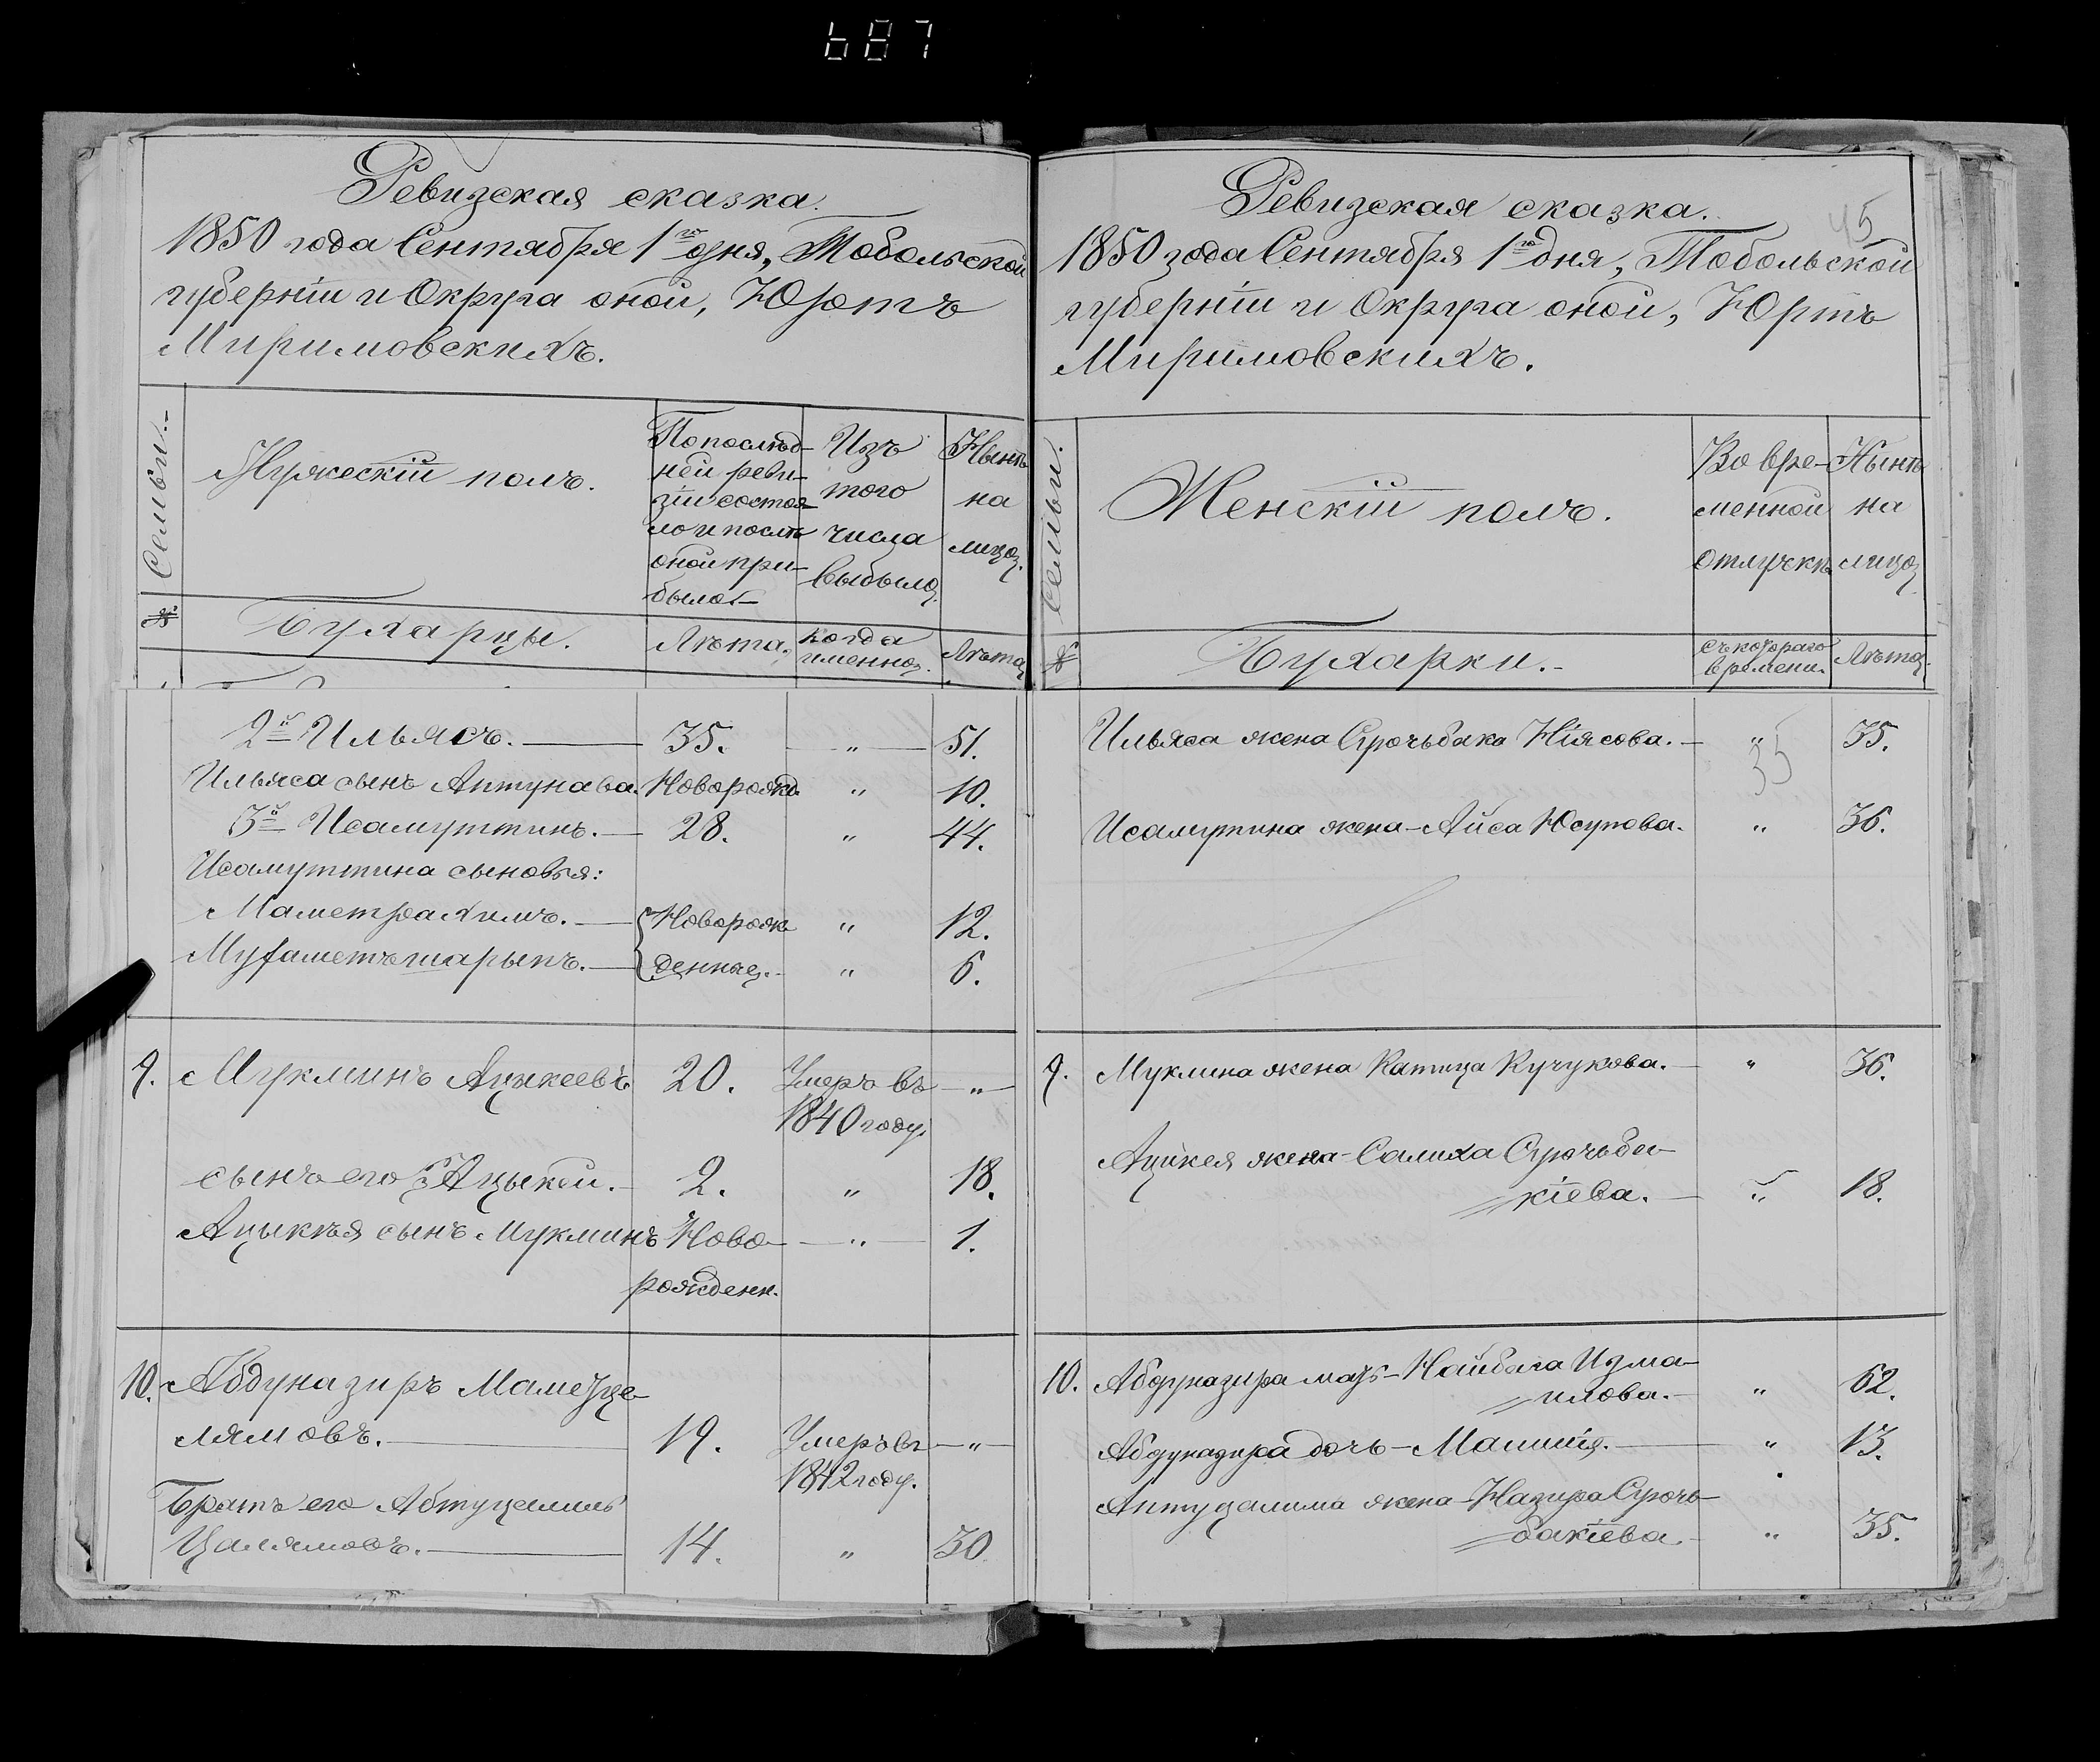 687
Ревизская сказка.
1850 года Сентября 1го дня, Тобольской
губерніи и Округа оной, Юртъ
Миримовскихъ.
№ Семьи.
Мужескій полъ.
По послѣд-
ней реви-
зіи состоя-
ло и послѣ
оной при-
было
Изъ
того
числа
выбыло
Нынѣ
на
лицо
Бухарцы.
Лѣта.
когда
именно.
Лѣта
2й Ильясъ. 35. " 51.
Ильяса сынъ Аптунава. Новорожд. " 10.
3й Исамуттинъ. 28. " 44.
Исамуттина сыновья:
Маметрахимъ. Новорож- " 12.
Мухаметъшарыпъ. денные. " 6.
9. Мукминъ Ацикеевъ 20. Умеръ въ "
1840 году.
сынъ его Ацыкей. 2. " 18.
Ацыкѣя сынъ Мукминъ Ново- " 1.
рожденн.
10. Абдуназиръ Мамецце-
лямовъ. 19. Умеръ въ "
1842 году.
Братъ его Абтуцелиль
Цалямовъ. 14. " 30
45
Ревизская сказка.
1850 года Сентября 1го дня, Тобольской
губерніи и Округа оной, Юртъ
Миримовскихъ.
№ Семьи.
Женскій полъ.
Во вре-
менной
отлучкѣ
Нынѣ
на
лицо
Бухарки.
съ котораго
времени.
Лѣта.
Ильяса жена Сючьбака Ніясова. " 35.
35
Исамутина жена Айса Юсупова. " 36.
9. Мукмина жена Катица Кучукова. " 36.
Ацикея жена Салиха Сючьба-
кіева. " 18.
10. Абдуназира мать Найбага Изма-
илова. " 62.
Абдуназира дочь Маншія. " 13.
Аптуцалима жена Назира Сючь-
бакіева. " 35.